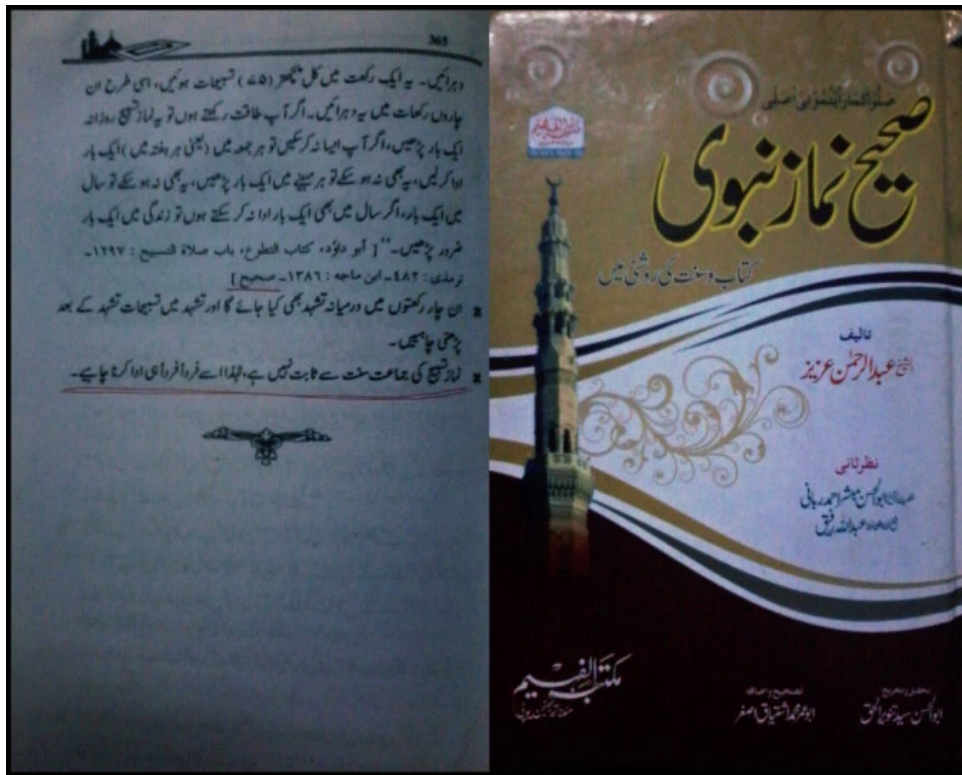 365
دہرائیں۔ یہ ایک رکعت میں کل پچھتر (۷۵) تسبیحات ہوئیں، اسی طرح ان
چاروں رکعات میں یہ دہرائیں۔ اگر آپ طاقت رکھتے ہوں تو یہ نماز تسبیح روزانہ
ایک بار پڑھیں، اگر آپ ایسا نہ کر سکیں تو ہر جمعہ میں (یعنی ہر ہفتہ میں) ایک بار
ادا کر لیں، یہ بھی نہ ہو سکے تو ہر مہینے میں ایک بار پڑھیں، یہ بھی نہ ہو سکے تو سال
میں ایک بار، اگر سال میں بھی ایک بار ادا نہ کر سکتے ہوں تو زندگی میں ایک بار
ضرور پڑھیں۔‘‘ [ أبو داؤد، كتاب التطوع، باب صلاة التسبيح : ۱۲۹۷۔
ترمذی : ۴۸۲۔ ابن ماجہ : ۱۳۸۶۔ صحیح ]
ان چار رکعتوں میں درمیانہ تشہد بھی کیا جائے گا اور تشہد میں تسبیحات تشہد کے بعد
پڑھنی چاہییں۔
نماز تسبیح کی جماعت سنت سے ثابت نہیں ہے، لہٰذا اسے فرداً فرداً ہی ادا کرنا چاہیے۔
صلوا كما رأيتموني أصلي
صحیح نماز نبوی
کتاب و سنت کی روشنی میں
تالیف
الشیخ عبدالرحمٰن عزیز
نظر ثانی
ابوالحسن مبشر احمد ربانی
عبداللہ رفیق
مکتبہ الفہیم
تحقیق و تخریج
ابوالحسن سید تنویر الحق
تصحیح و اضافہ
ابو عمر محمد اشتیاق اصغر